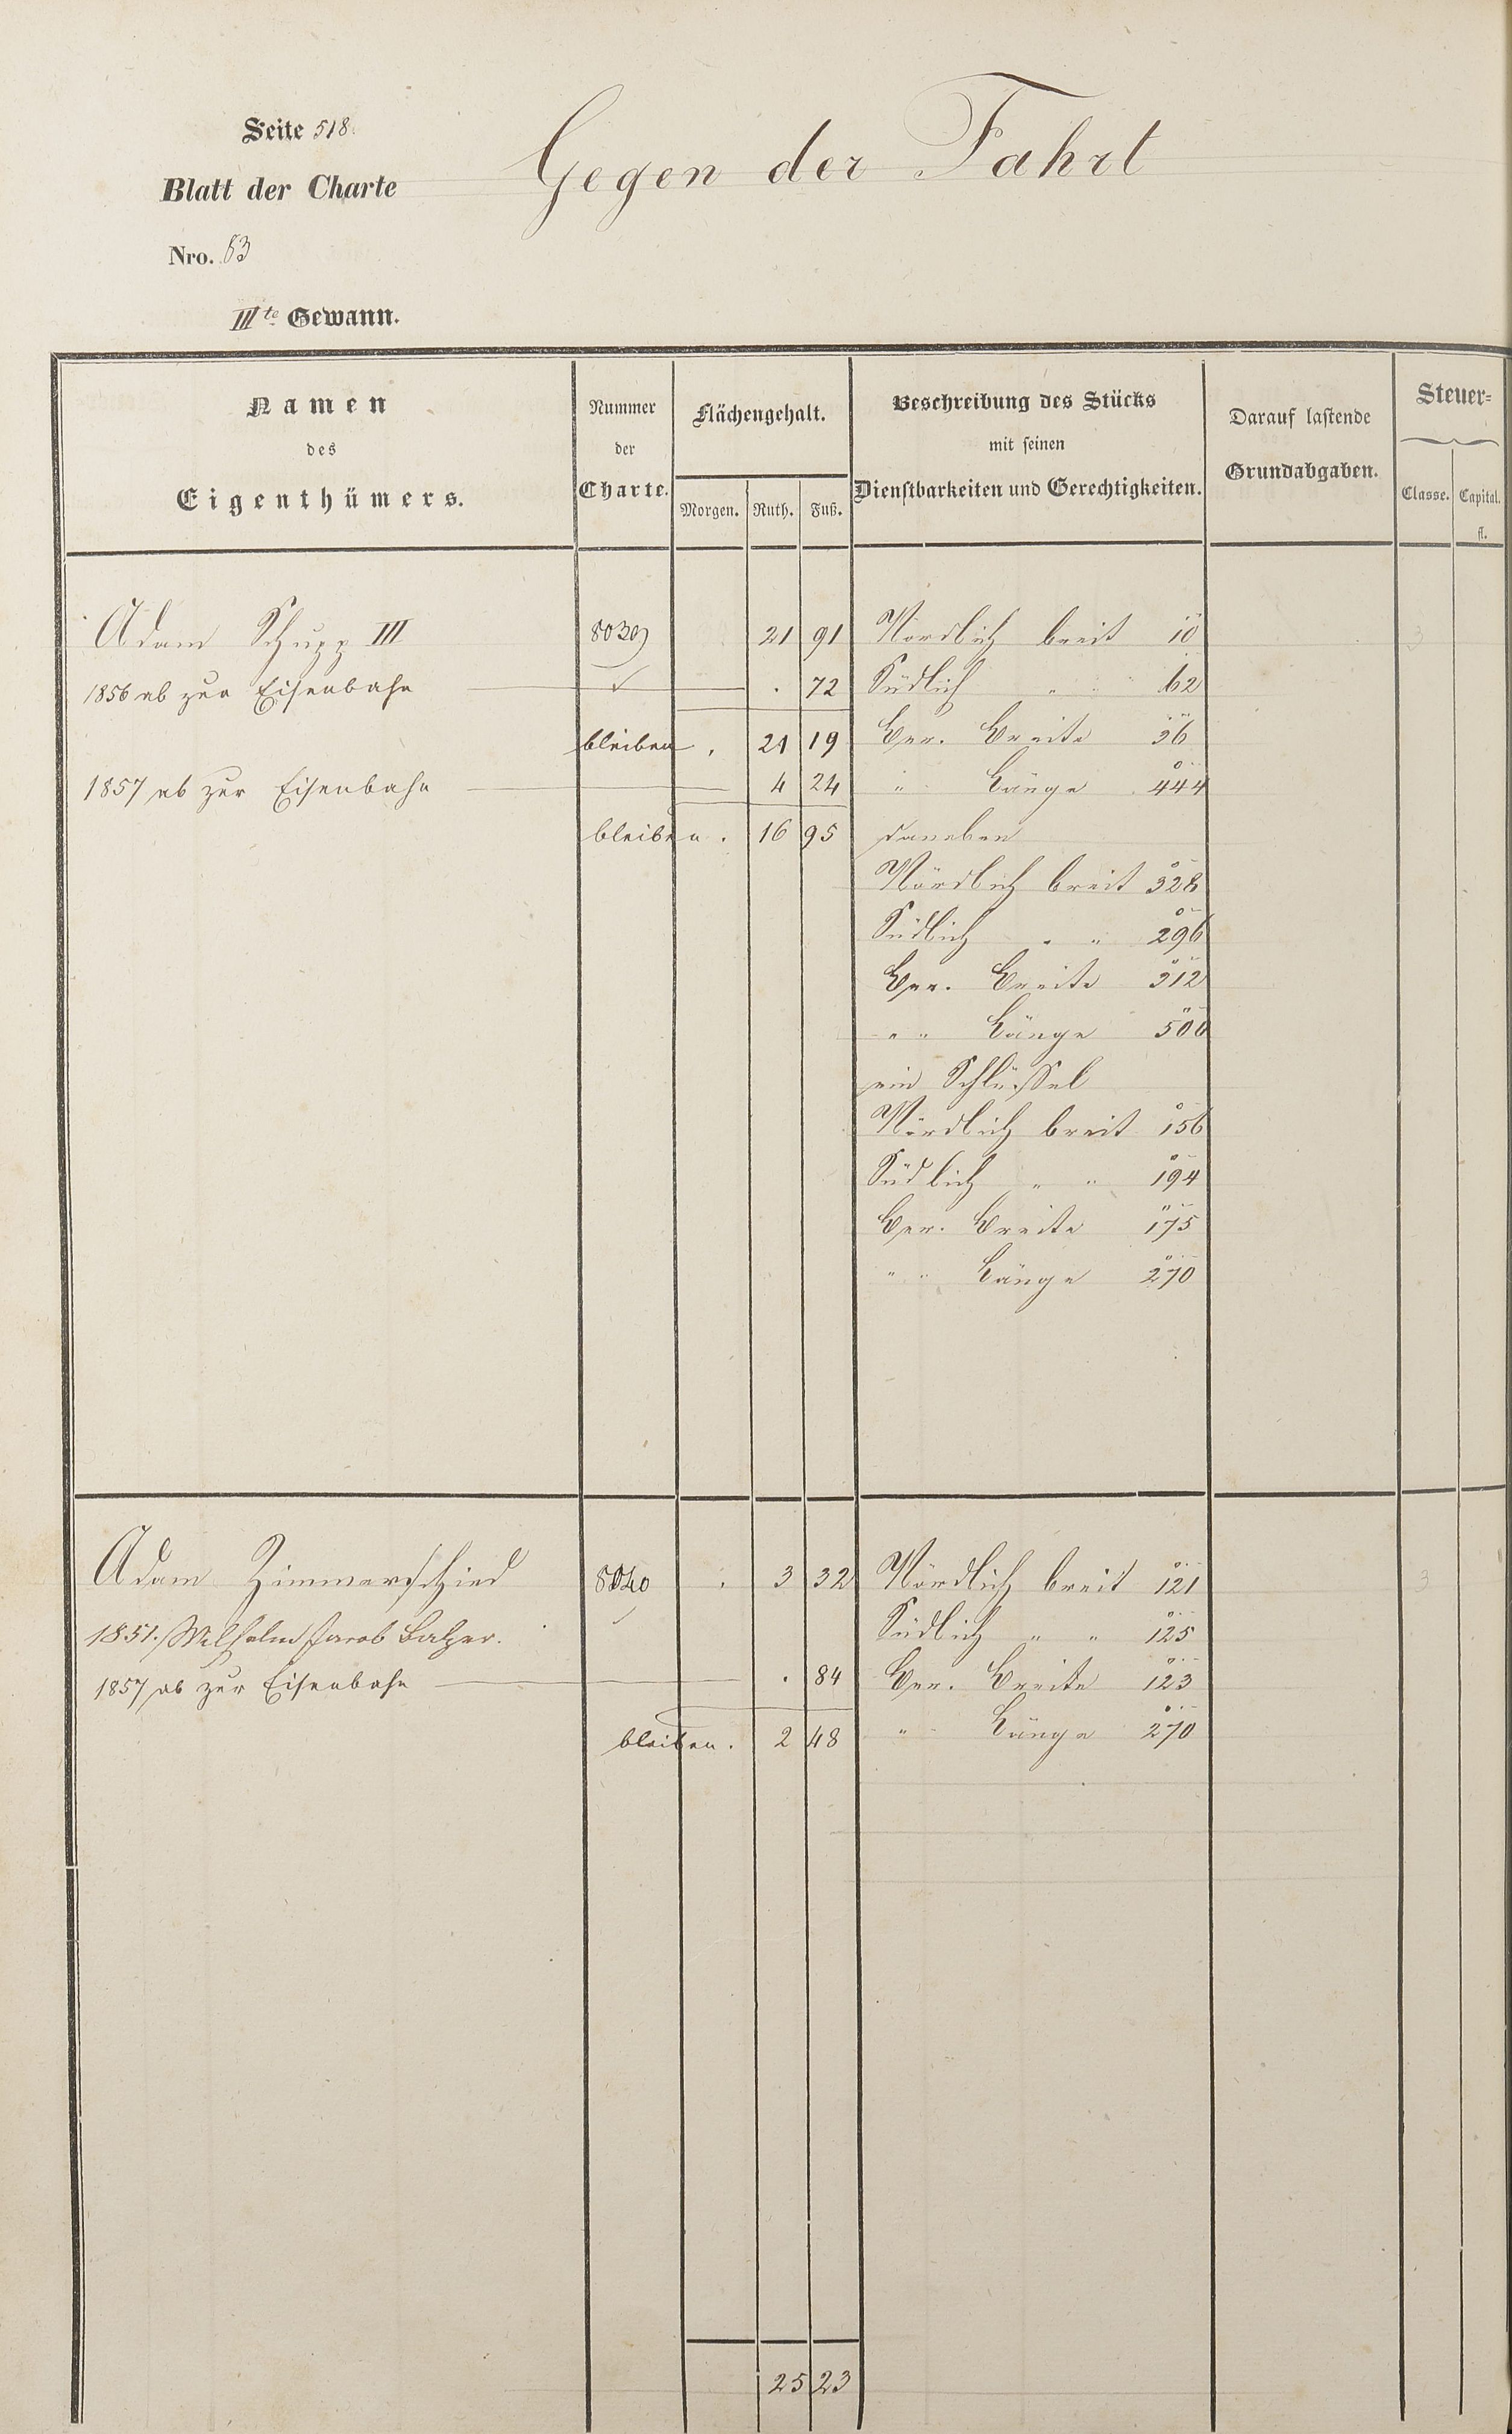 Seite 518.
Gegen der Fahrt
Blatt der Charte
Nro. 83
IIIte Gewann.
Namen des Eigenthümers.
Nummer der Charte.
Flächengehalt.
Morgen. Ruth. Fuß.
Beschreibung des Stücks mit seinen Dienstbarkeiten und Gerechtigkeiten.
Darauf lastende Grundabgaben.
Steuer=
Classe. Capital.
fl.
Adam Schupp III 8039 21 91 Nördlich breit 10 3
1856 ab zur Eisenbahn . 72 Südlich " 62
bleiben . 21 19 Ger. Breite 36
1857 ab zur Eisenbahn 4 24 " Länge 444
bleiben . 16 95 daneben
Nördlich breit 328
Südlich " " 296
Ger. Breite 312
" " Länge 500
ein Schlüssel
Nördlich breit 156
Südlich " " 194
Ger. Breite 175
" " Länge 270
Adam Zimmerschied 8040 . 3 32 Nördlich breit 121 3
1851. Wilhelm Jacob Balzer. Südlich " " 125
1857 ab zur Eisenbahn . 84 Ger. Breite 123
bleiben . 2 48 " Länge 270
25 23